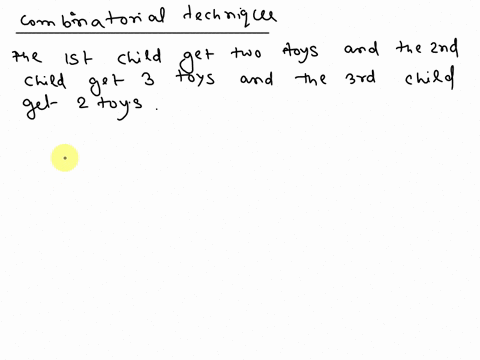 combinatorial technique
The 1st child get two toys and the 2nd
child get 3 toys and the 3rd child
get 2 toys.